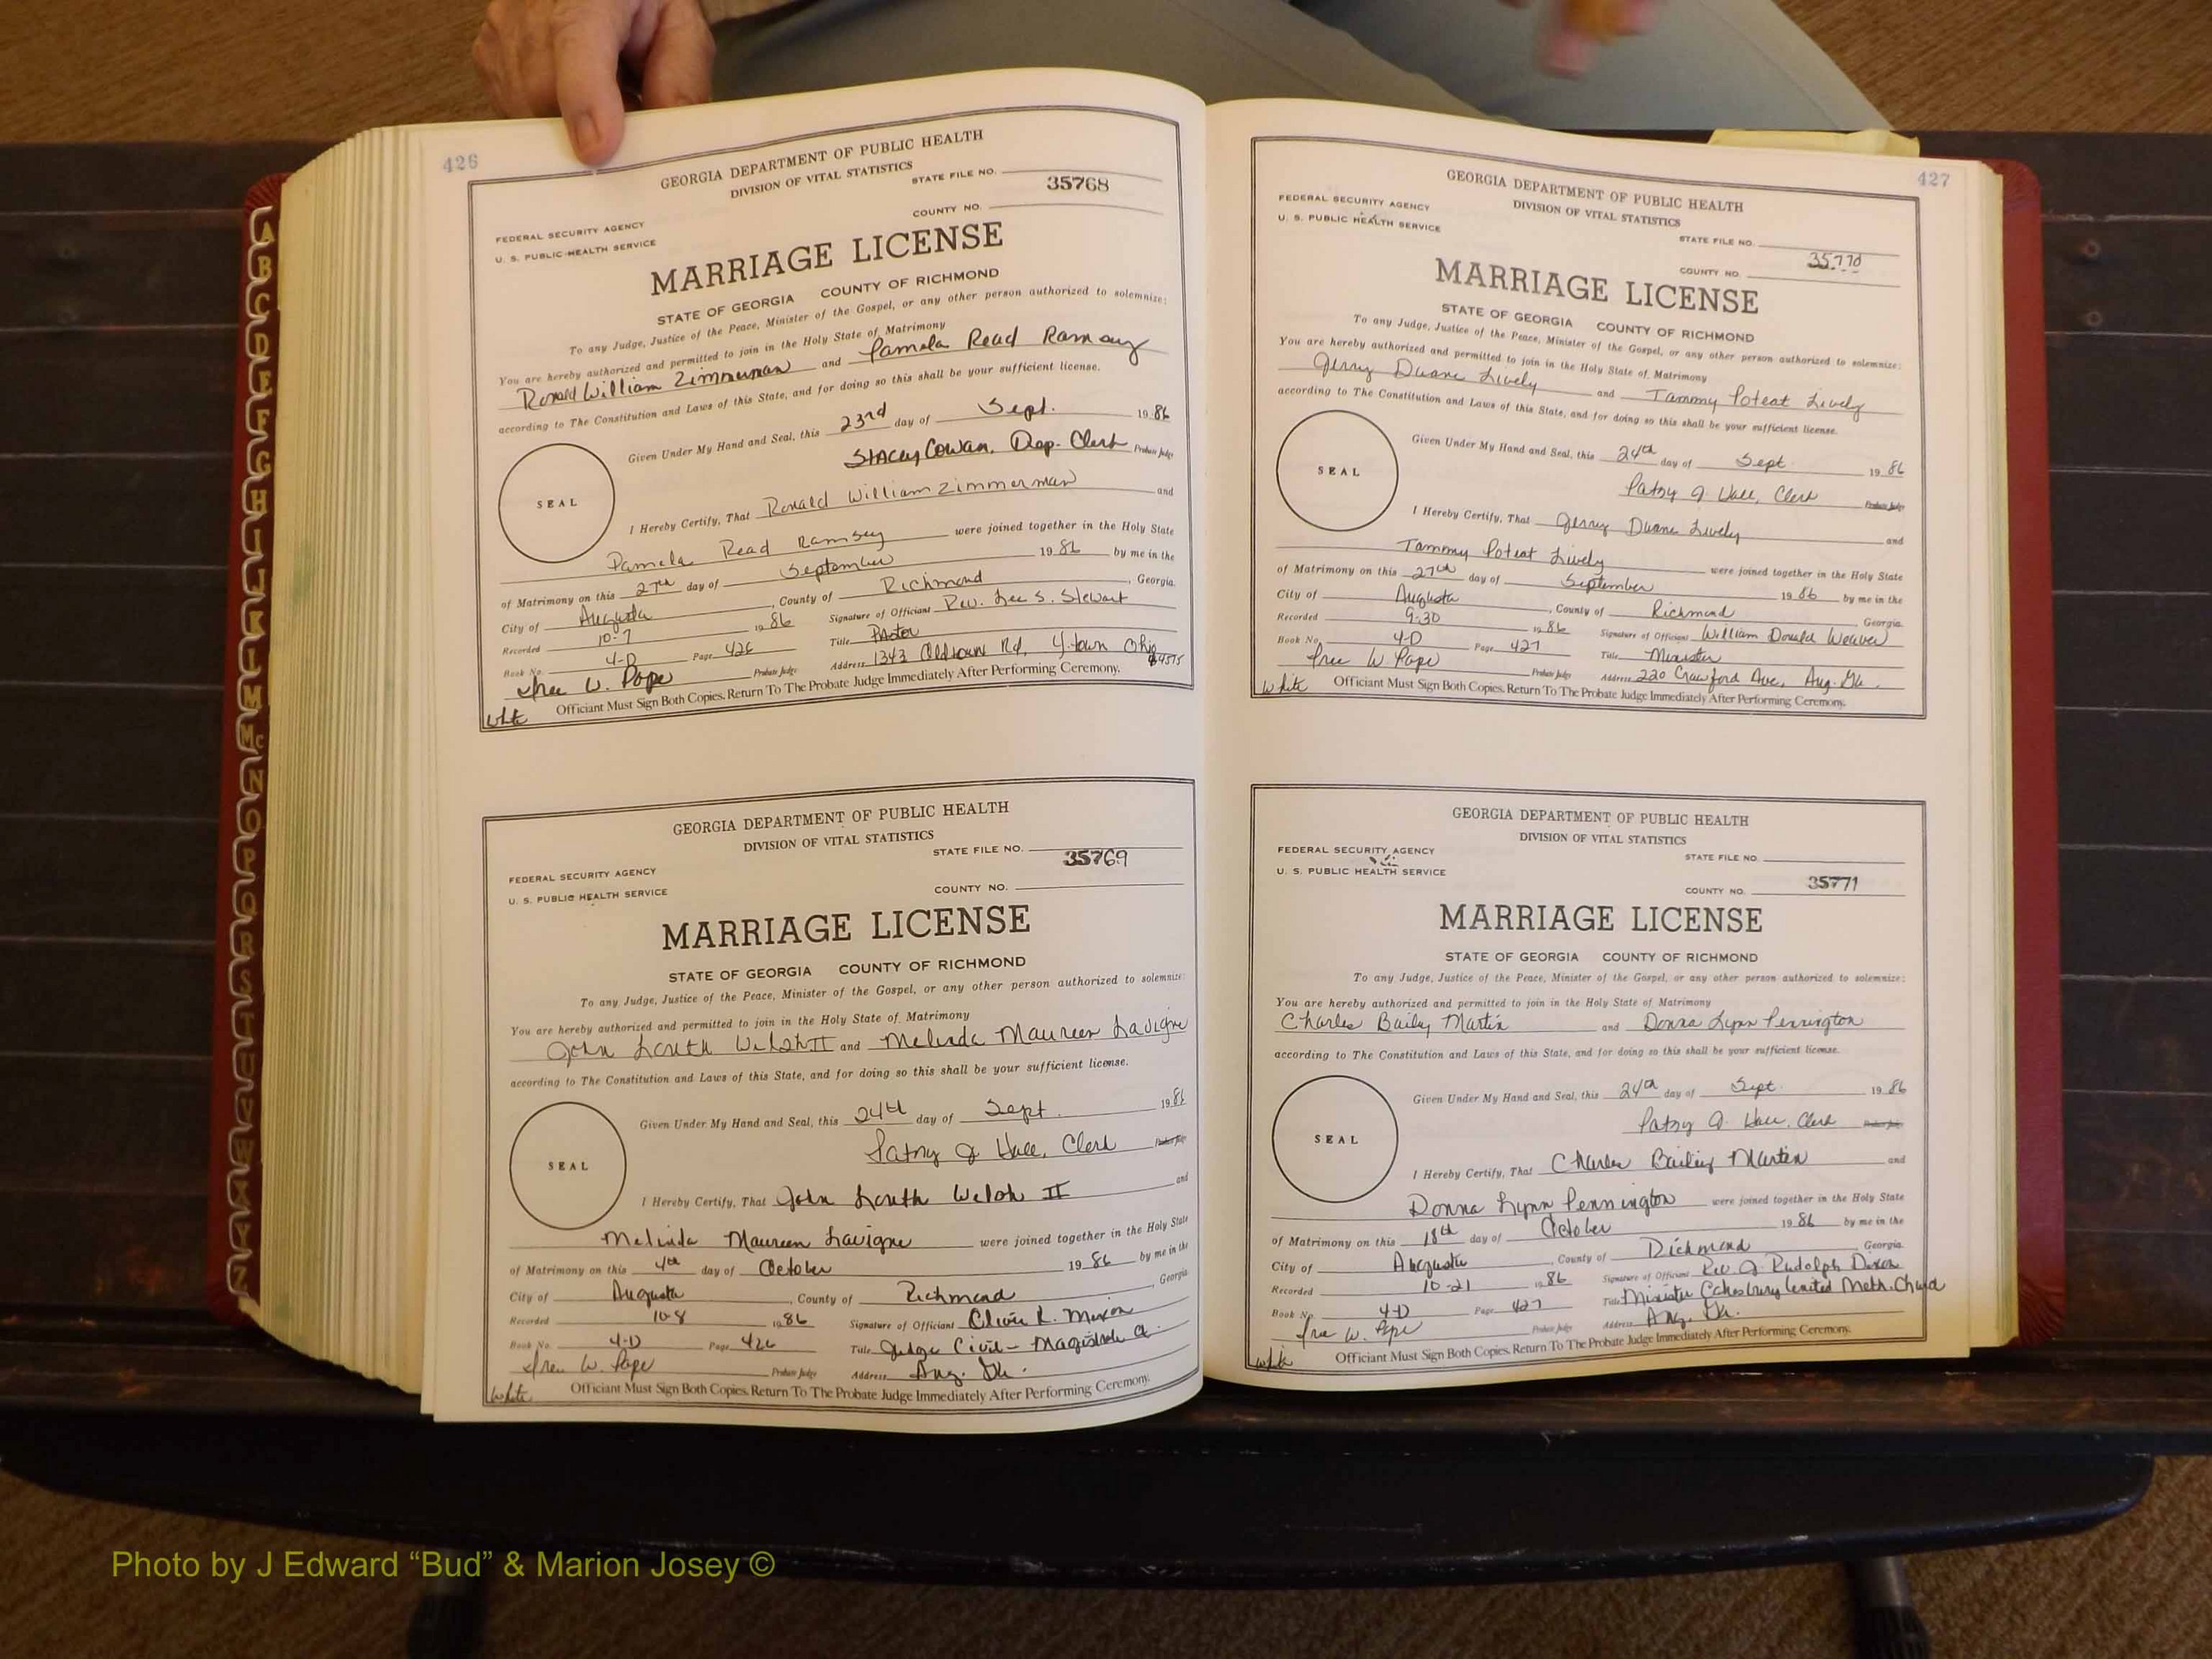 426
GEORGIA DEPARTMENT OF PUBLIC HEALTH
DIVISION OF VITAL STATISTICS
STATE FILE NO.
35768
FEDERAL SECURITY AGENCY
COUNTY NO.
U. S. PUBLIC HEALTH SERVICE
MARRIAGE LICENSE
STATE OF GEORGIA COUNTY OF RICHMOND
To any Judge, Justice of the Peace, Minister of the Gospel, or any other person authorized to solemnize:
You are hereby authorized and permitted to join in the Holy State of Matrimony
Ronald William Zimmerman and Pamela Read Ramsey
according to The Constitution and Laws of this State, and for doing so this shall be your sufficient license.
Given Under My Hand and Seal, this 23rd day of Sept. 1986
Stacey Cowan, Dep. Clerk Probate Judge
SEAL
I Hereby Certify, That Ronald William Zimmerman and
Pamela Read Ramsey were joined together in the Holy State
of Matrimony on this 27th day of September 1986 by me in the
City of Augusta, County of Richmond, Georgia.
Recorded 10-7 1986 Signature of Officiant Rev. Lee S. Stewart
Book No. 4-D Page 426 Title Pastor
W. Pope Probate Judge Address 1343 Oldtown Rd, Y-town Ohio 44515
White Officiant Must Sign Both Copies. Return To The Probate Judge Immediately After Performing Ceremony.
GEORGIA DEPARTMENT OF PUBLIC HEALTH
DIVISION OF VITAL STATISTICS
STATE FILE NO.
35769
FEDERAL SECURITY AGENCY
COUNTY NO.
U. S. PUBLIC HEALTH SERVICE
MARRIAGE LICENSE
STATE OF GEORGIA COUNTY OF RICHMOND
To any Judge, Justice of the Peace, Minister of the Gospel, or any other person authorized to solemnize:
You are hereby authorized and permitted to join in the Holy State of Matrimony
John Welsh II and Melinda Maureen Lavigne
according to The Constitution and Laws of this State, and for doing so this shall be your sufficient license.
Given Under My Hand and Seal, this 24th day of Sept. 1986
Patsy J. Hall, Clerk Probate Judge
SEAL
I Hereby Certify, That John Welsh II and
Melinda Maureen Lavigne were joined together in the Holy State
of Matrimony on this 4th day of October 1986 by me in the
City of Augusta, County of Richmond, Georgia
Recorded 10-8 1986 Signature of Officiant L. Mixon
Book No. 4-D Page 426 Title Judge Civil - Magistrate Ct.
W. Pope Probate Judge Address Aug. Ga.
White Officiant Must Sign Both Copies. Return To The Probate Judge Immediately After Performing Ceremony.
427
GEORGIA DEPARTMENT OF PUBLIC HEALTH
DIVISION OF VITAL STATISTICS
FEDERAL SECURITY AGENCY
U. S. PUBLIC HEALTH SERVICE
STATE FILE NO.
35770
COUNTY NO.
MARRIAGE LICENSE
STATE OF GEORGIA COUNTY OF RICHMOND
To any Judge, Justice of the Peace, Minister of the Gospel, or any other person authorized to solemnize:
You are hereby authorized and permitted to join in the Holy State of Matrimony
Jerry Duane Lively and Tammy Poteat Lively
according to The Constitution and Laws of this State, and for doing so this shall be your sufficient license.
Given Under My Hand and Seal, this 24th day of Sept. 1986
Patsy J. Hall, Clerk Probate Judge
SEAL
I Hereby Certify, That Jerry Duane Lively and
Tammy Poteat Lively were joined together in the Holy State
of Matrimony on this 27th day of September 1986 by me in the
City of Augusta, County of Richmond Georgia.
Recorded 9-30 1986 Signature of Officiant William Donald Weaver
Book No. 4-D Page 427 Title Minister
W. Pope Probate Judge Address 220 Crawford Ave, Aug. Ga.
White Officiant Must Sign Both Copies. Return To The Probate Judge Immediately After Performing Ceremony.
GEORGIA DEPARTMENT OF PUBLIC HEALTH
DIVISION OF VITAL STATISTICS
FEDERAL SECURITY AGENCY
STATE FILE NO.
U. S. PUBLIC HEALTH SERVICE
35771
COUNTY NO.
MARRIAGE LICENSE
STATE OF GEORGIA COUNTY OF RICHMOND
To any Judge, Justice of the Peace, Minister of the Gospel, or any other person authorized to solemnize:
You are hereby authorized and permitted to join in the Holy State of Matrimony
Charles Baily Martin and Donna Lynn Pennington
according to The Constitution and Laws of this State, and for doing so this shall be your sufficient license.
Given Under My Hand and Seal, this 24th day of Sept. 1986
Patsy J. Hall, Clerk Probate Judge
SEAL
I Hereby Certify, That Charles Bailey Martin and
Donna Lynn Pennington were joined together in the Holy State
of Matrimony on this 18th day of October 1986 by me in the
City of Augusta, County of Richmond Georgia.
Recorded 10-21 1986 Signature of Officiant Rev J. Rudolph Dixon
Book No. 4-D Page 427 Title Minister United Meth. Church
W. Pope Probate Judge Address Aug. Ga.
White Officiant Must Sign Both Copies. Return To The Probate Judge Immediately After Performing Ceremony.
A
B
C
D
E
F
G
H
I
J
K
L
M
Mc
N
O
P
Q
R
S
T
U
V
W
X
Y
Z
Photo by J Edward “Bud” & Marion Josey ©